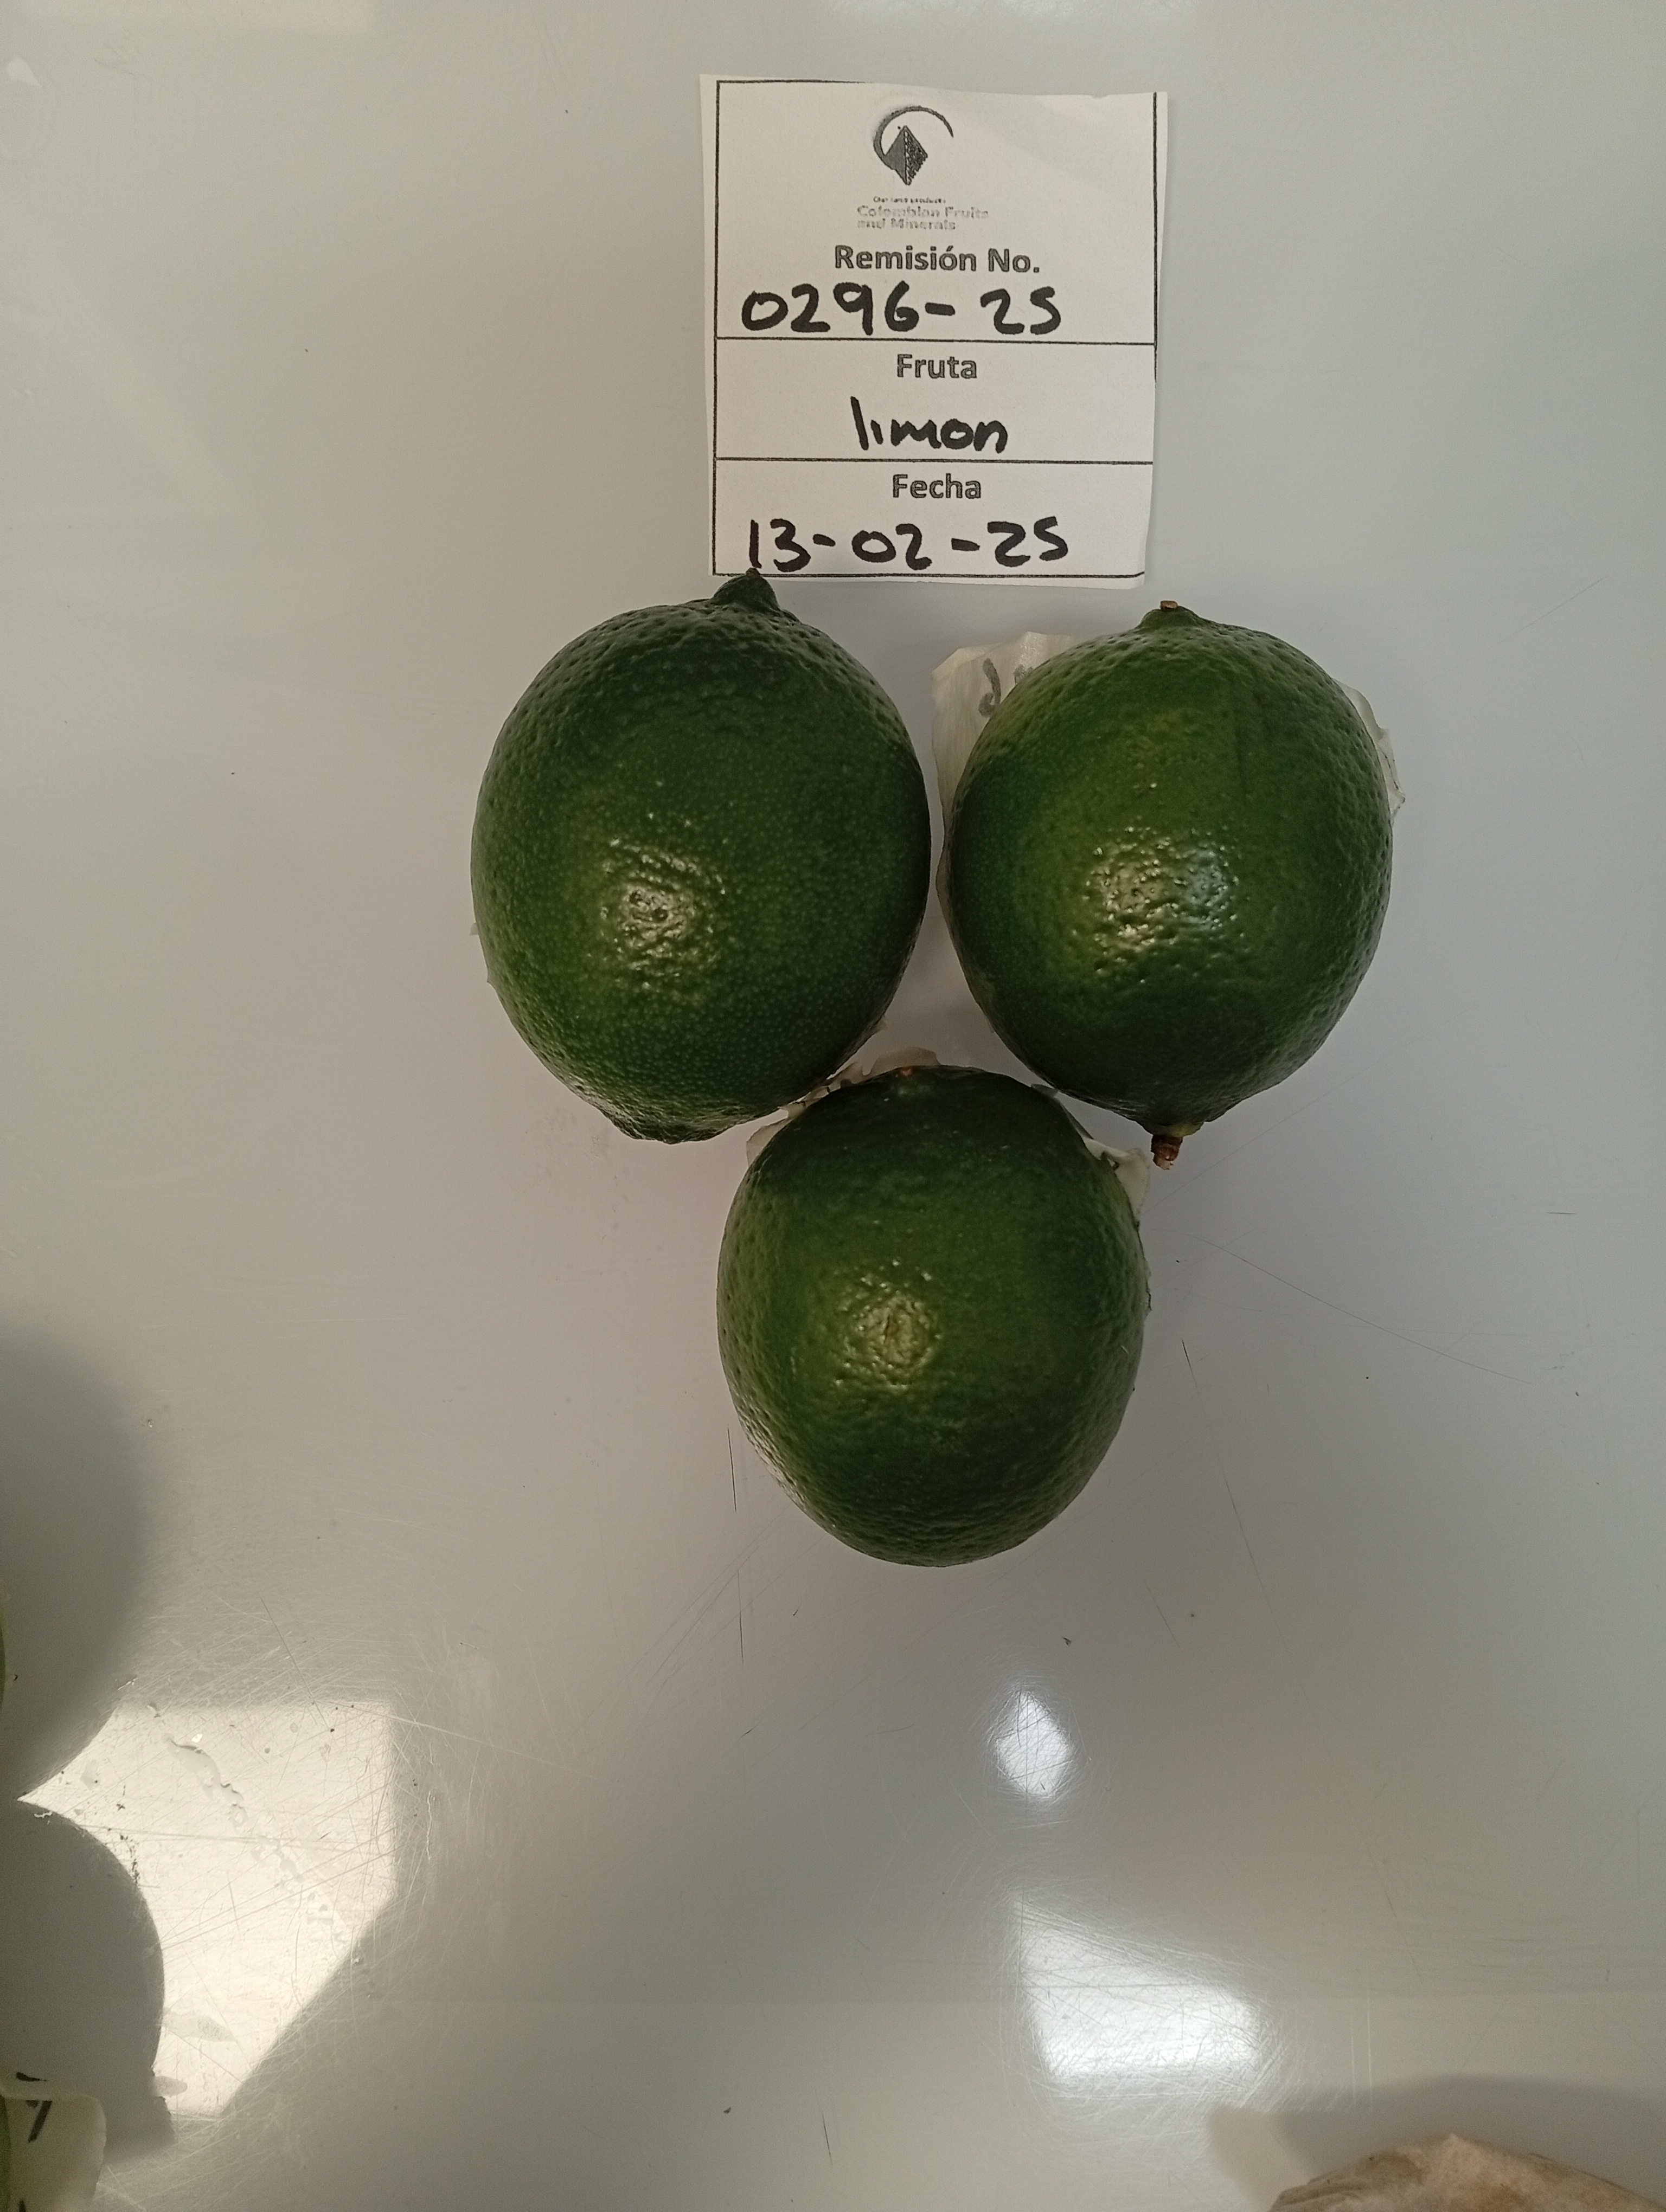 Our land products
Colombian Fruits
and Minerals
Remisión No.
0296-25
Fruta
limon
Fecha
13-02-25